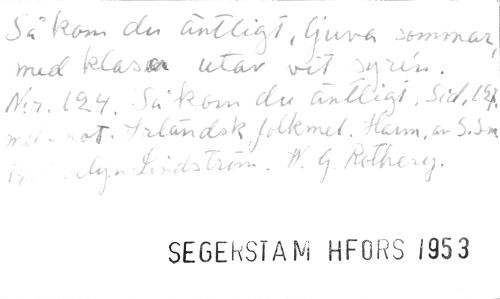 Så kom du äntligt, ljuva sommar,
med klasar utav vit syrén.
N:r. 124. Så kom du äntligt. Sid, 
not. Irländsk folkmel. Harm, av S.
Lindström. W. G. Rotherg.
SEGERSTAM HFORS 1953